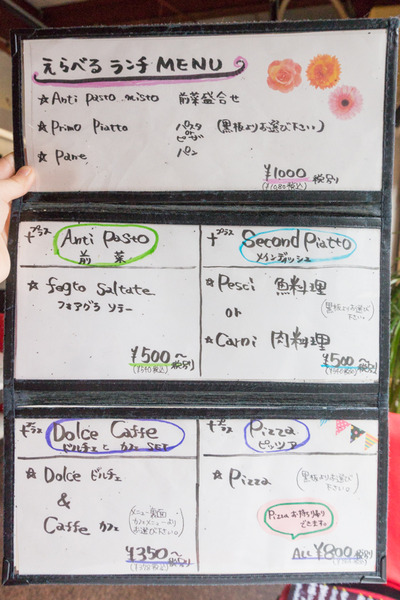 えらべる ランチ MENU
☆ Anti pasto misto 前菜盛合せ
☆ Primo Piatto パスタ or ピザ (黒板よりお選び下さい)
☆ Pane パン
¥1000 税別
(¥1080税込)
+プラス Anti Pasto
前菜
☆ fogto saltate
フォアグラ ソテー
¥500~税別
(¥540税込)
+プラス Second Piatto
メインディッシュ
☆ Pesci 魚料理
or
(黒板よりお選び下さい。)
☆ Carni 肉料理
¥500~税別
(¥540税込)
+プラス Dolce Caffe
ドルチェ と カフェ SET
☆ Dolce ドルチェ
&
Caffe カフェ
(メニュー裏面
カフェメニューより
お選び下さい。)
¥350~税別
+プラス Pizza
ピッツア
☆ Pizza (黒板よりお選び下さい。)
Pizzaお持ち帰り
できます。
ALL ¥800税別